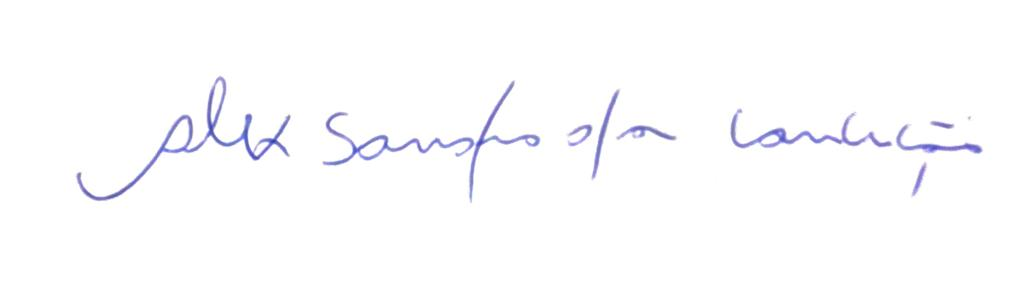 Alex Sandro da Conceição